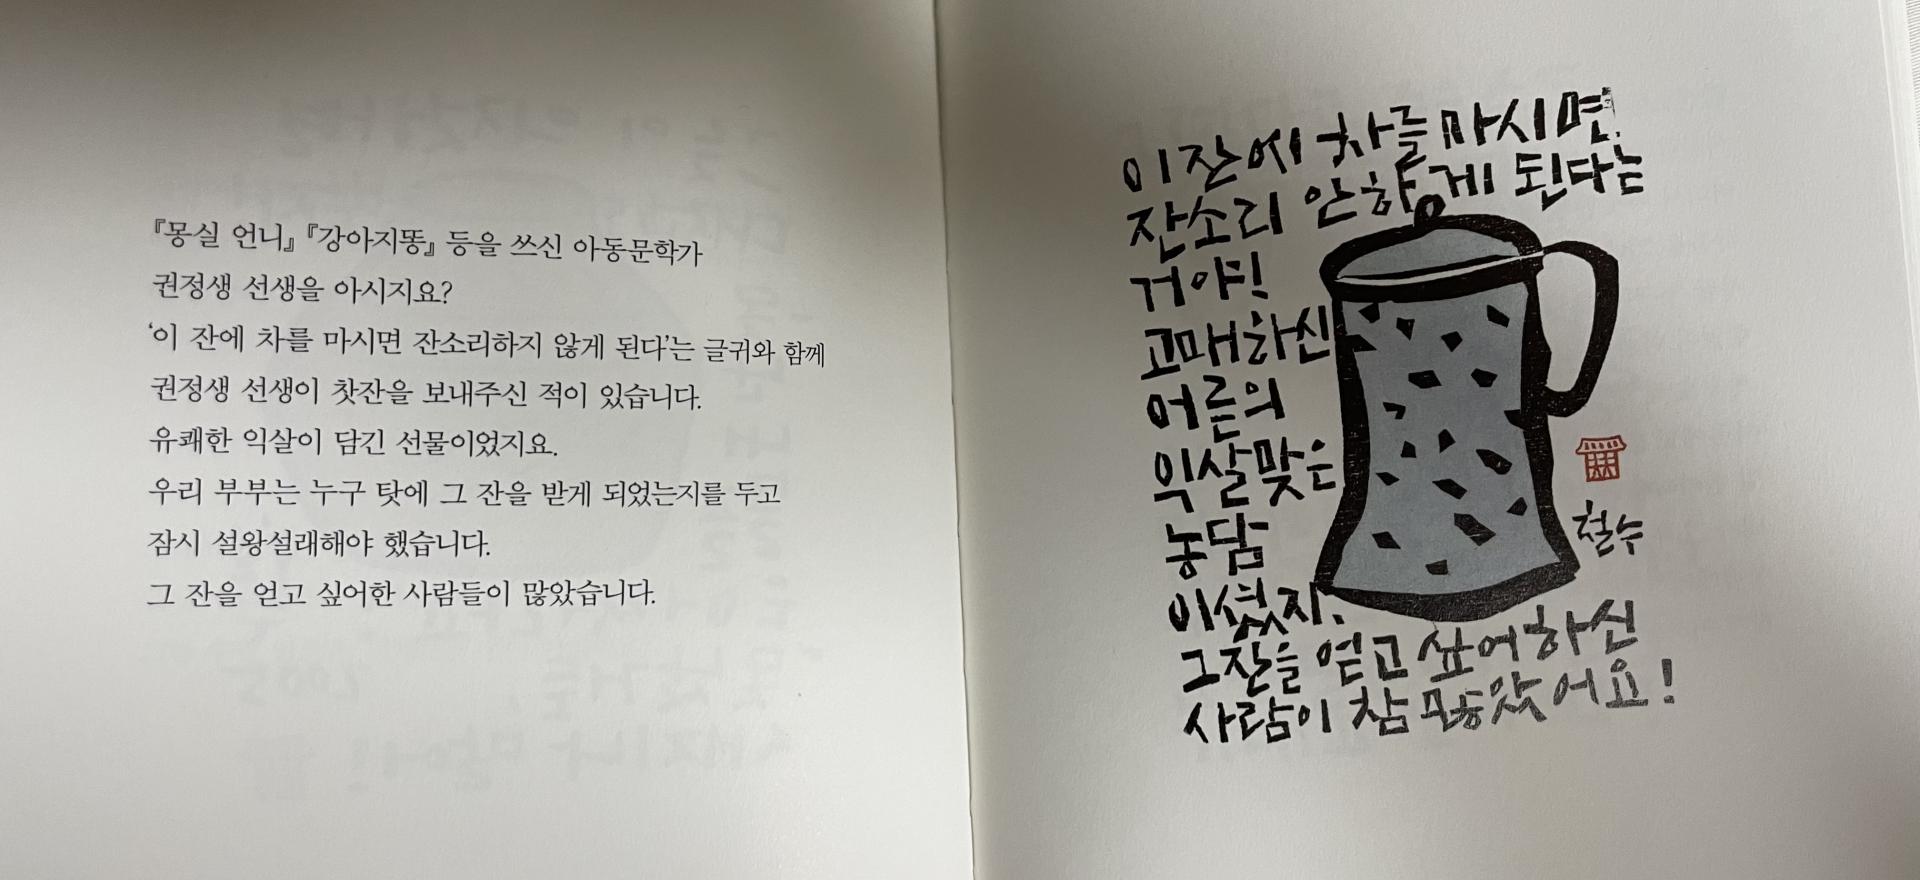 『몽실 언니』 『강아지똥』 등을 쓰신 아동문학가
권정생 선생을 아시지요?
‘이 잔에 차를 마시면 잔소리하지 않게 된다’는 글귀와 함께
권정생 선생이 찻잔을 보내주신 적이 있습니다.
유쾌한 익살이 담긴 선물이었지요.
우리 부부는 누구 탓에 그 잔을 받게 되었는지를 두고
잠시 설왕설래해야 했습니다.
그 잔을 얻고 싶어한 사람들이 많았습니다.
이 잔에 차를 마시면
잔소리 안 하게 된다는
거야!
고매하신
어른의
익살맞은
농담
이셨지.
그 잔을 얻고 싶어하신
사람이 참 많았어요!
철수